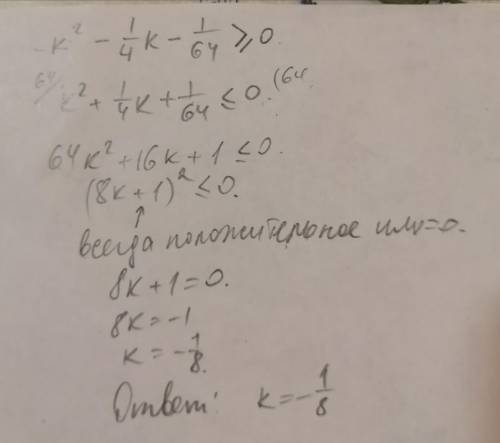 -k² - 1/4 k - 1/64 ⩾ 0.
64/ k² + 1/4 k + 1/64 ≤ 0. (64
64k² + 16k + 1 ≤ 0.
(8k + 1)² ≤ 0.
↑
всегда положительное или = 0.
8k + 1 = 0.
8k = -1
k = -1/8.
Ответ: k = -1/8